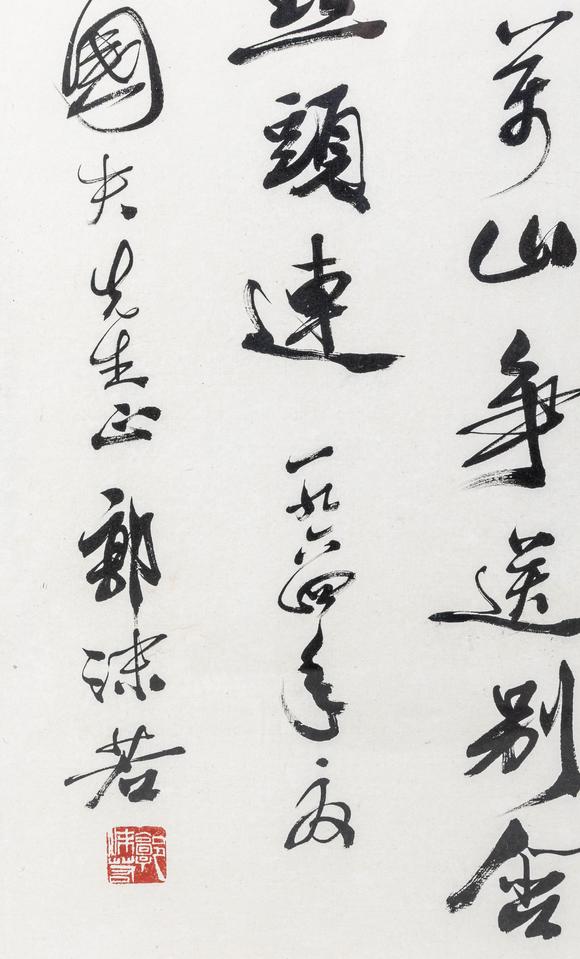 萬山爭送別
頭連
一九六四年夏
國夫先生正
郭沫若
郭沫若